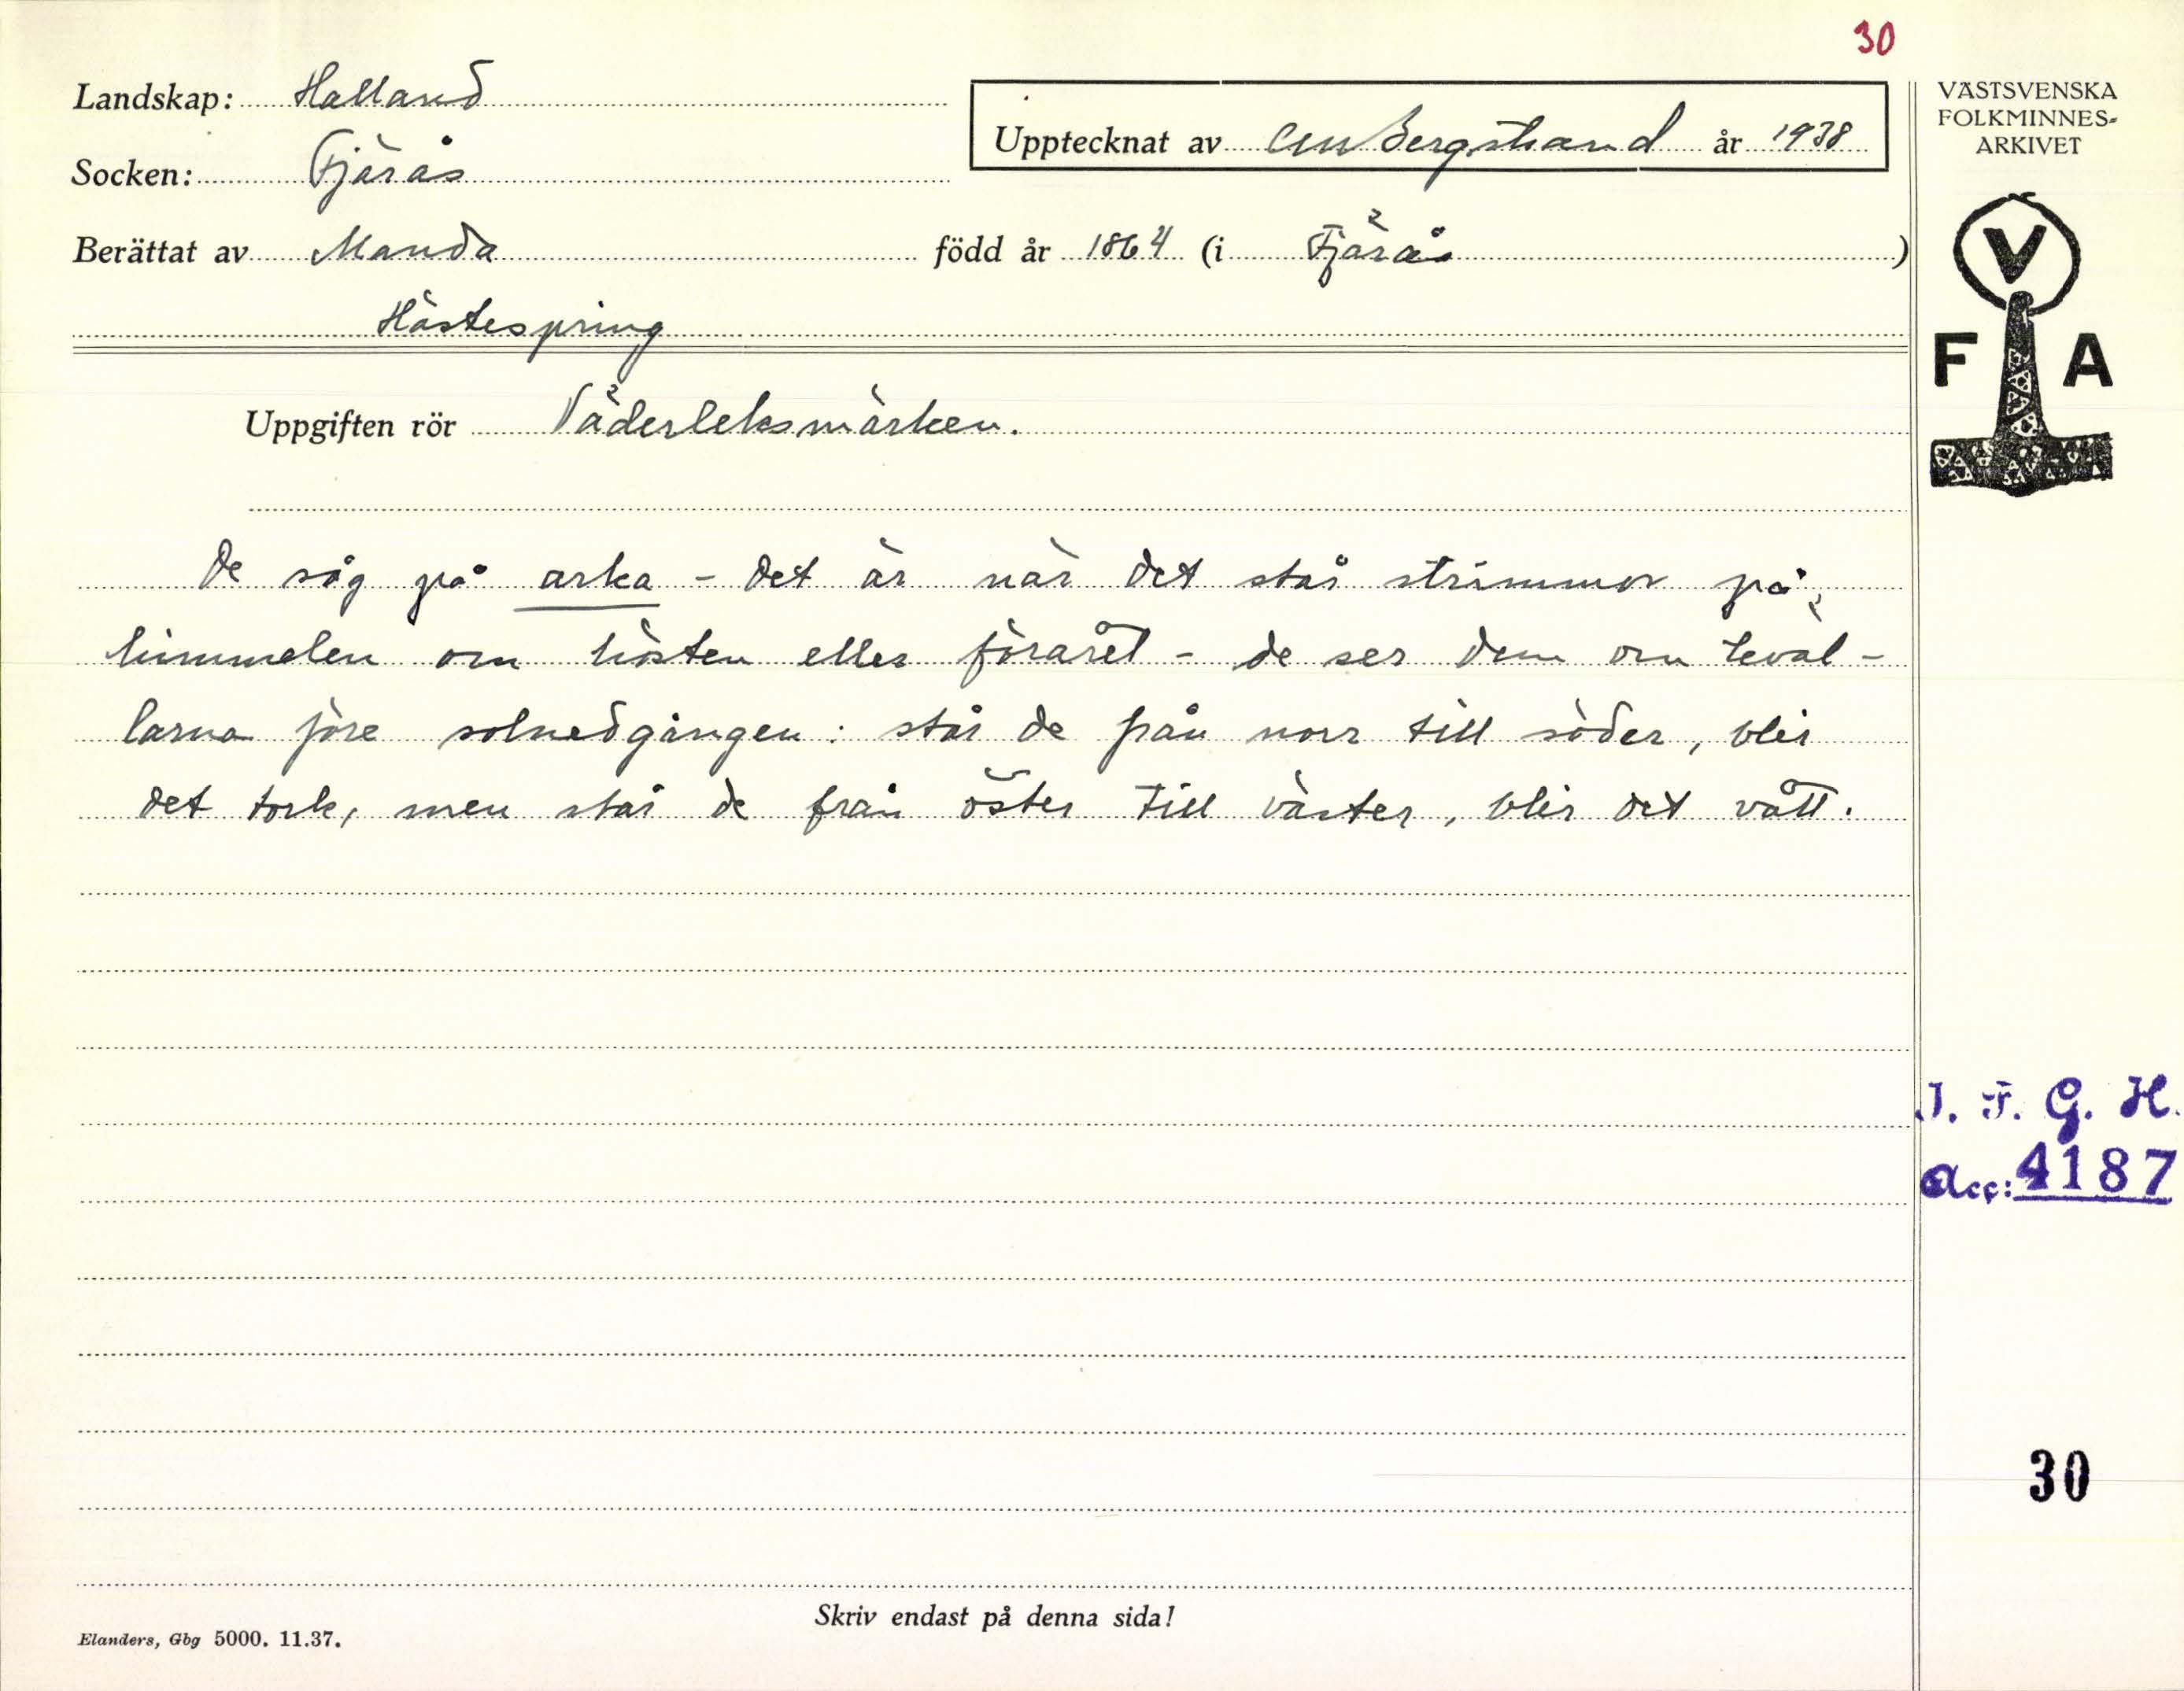 30
Landskap: Halland
Upptecknat av CM Bergstrand år 1938
Socken: Fjärås
Berättat av Manda född år 1864 (i Fjärås)
Hästespring
Uppgiften rör Väderleksmärken.
De såg på arka - det är när det står strimmor på
himmelen om hösten eller föråret - de ser dem om kväl-
larna före solnedgången: står de från norr till söder, blir
det tork, men står de från öster till väster, blir det vått.
Skriv endast på denna sida!
Elanders, Gbg 5000. 11.37.
VÄSTSVENSKA
FOLKMINNES-
ARKIVET
V
F A
I. F. G. H.
Acc: 4187
30